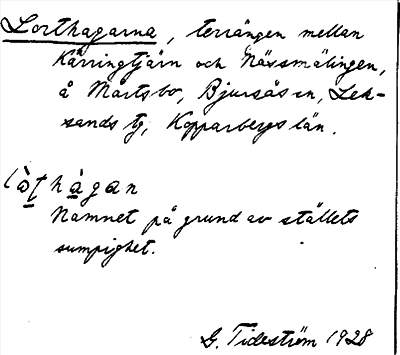 Lorthagarna, terrängen mellan
Kärringtjärn och Nässmälingen,
å Mårtsbo, Bjursås sn, Lek-
sands tg, Kopparbergs län.
hàgan
Namnet på grund av ställets
sumpighet.
G. Tideström 1928